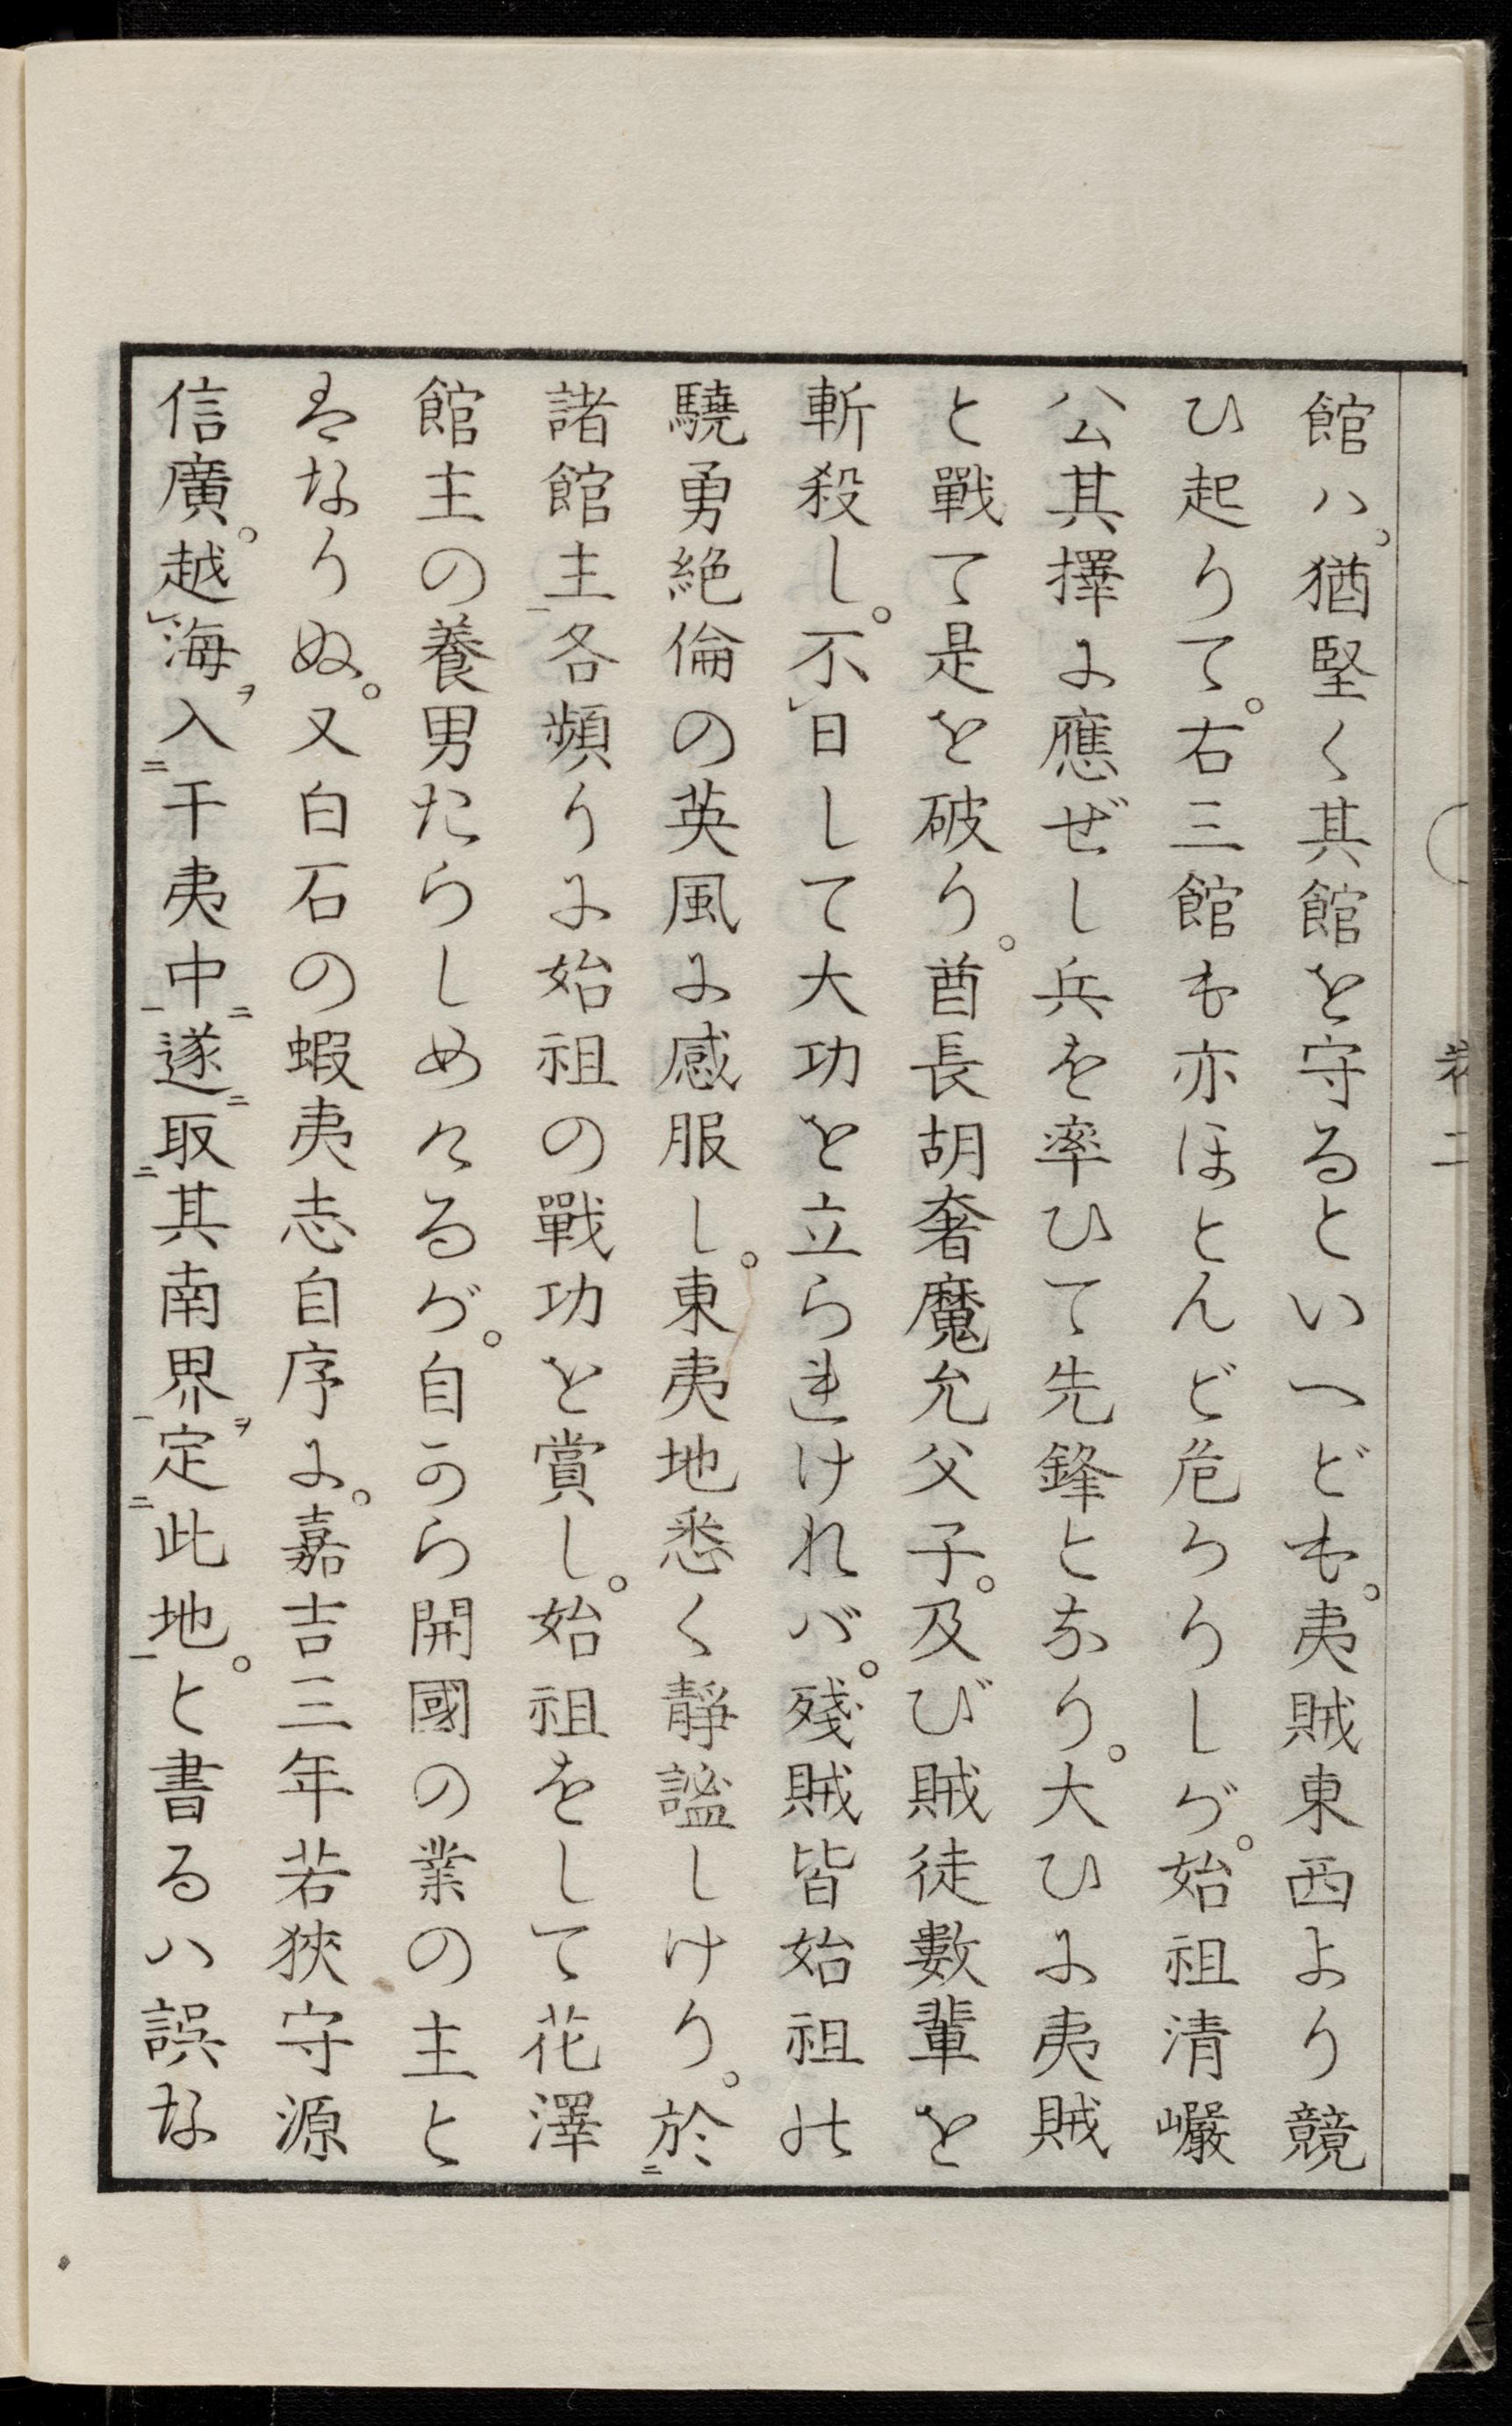 館ハ。猶堅く其館を守るといへども。夷賊東西より競
ひ起りて。右三館も亦ほとんど危うりしが。始祖清巖
公其擇に應ぜし兵を率ひて先鋒となり。大ひに夷賊
と戰て是を破り。酋長胡奢魔允父子。及び賊徒數輩を
斬殺し。不レ日して大功を立られけれバ。殘賊皆始祖の
驍勇絶倫の英風に感服し。東夷地悉く靜謐しけり。於二
諸館主一各頻りに始祖の戰功を賞し。始祖をして花澤
館主の養男たらしめけるが。自から開國の業の主と
はなりぬ。又白石の蝦夷志自序に。嘉吉三年若狹守源
信廣。越レ海ヲ入二干夷中一ニ遂ニ取二其南界一ヲ定二此地一。と書るハ誤な
卷二